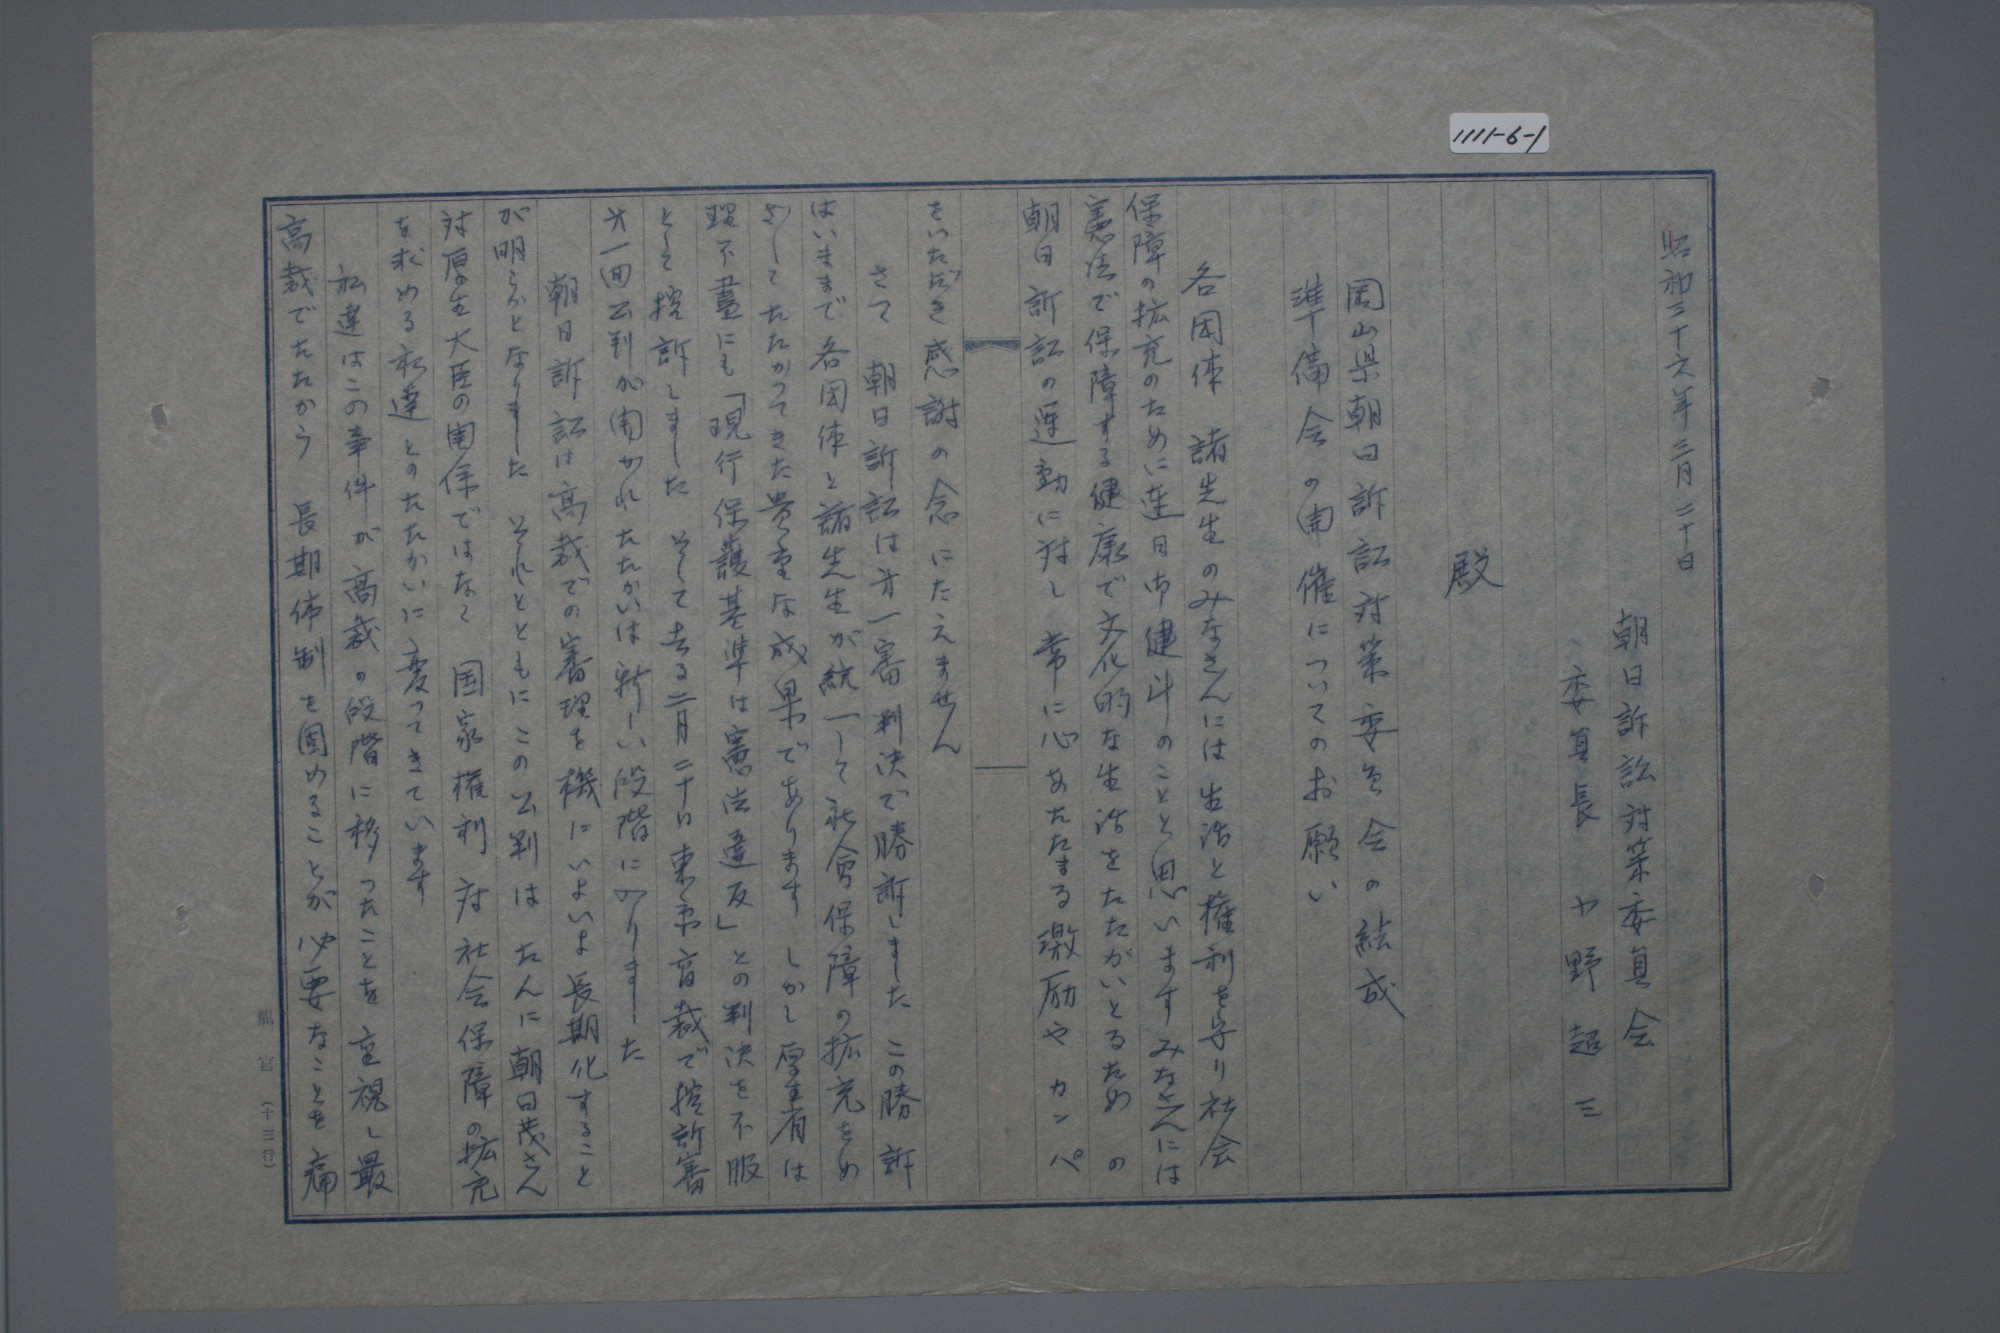 1111-6-1
昭和三十六年三月二十日
朝日訴訟対策委員会
委員長 中野超三
殿
岡山県朝日訴訟対策委員会の結成
準備会の開催についてのお願い
各団体 諸先生のみなさんには生活と権利を守り社会
保障の拡充のために連日御健斗のことと思いますみなさんには
憲法で保障する健康で文化的な生活をたたかいとるための
朝日訴訟の運動に対し常に心あたたまる激励やカンパ
をいただき感謝の念にたえません
さて 朝日訴訟は才一審判決で勝訴しました この勝訴
はいままで各団体と諸先生が統一して社會保障の拡充をめ
ざしてたたかってきた貴重な成果であります しかし厚生省は
理不盡にも「現行保護基準は憲法違反」との判決を不服
として控訴しました そして去る二月二十日東京高裁で控訴審
才一回公判が開かれたたかいは新しい段階に入りました
朝日訴訟は高裁での審理を機にいよいよ長期化すること
が明らかとなりました それとともにこの公判は たんに朝日茂さん
対厚生大臣の関係ではなく 国家権利対社会保障の拡充
を求める私達とのたたかいに変ってきています
私達はこの事件が高裁の段階に移ったことを重視し最
高裁でたたかう 長期体制を固めることが必要なことを痛
龍官（十三行）